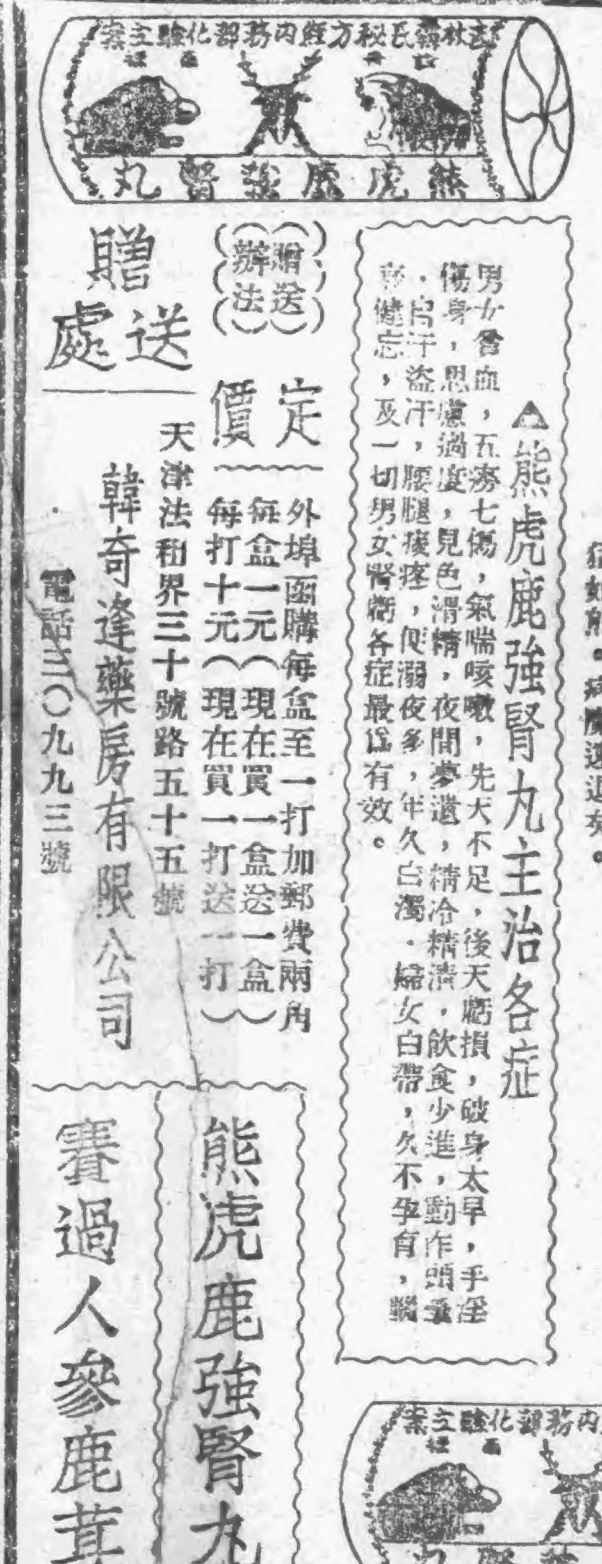 林韓氏秘方經內務部化驗立案
熊虎鹿強腎丸
▲熊虎鹿強腎丸主治各症
男女腎血，五癆七傷，氣喘咳嗽，先天不足，後天虧損，破身太早，手淫
傷身，思慮過度，見色滑精，夜間夢遺，精冷精清，飲食少進，動作頭暈
，自汗盜汗，腰腿痠疼，便溺夜多，年久白濁，婦女白帶，久不孕育，
健忘，及一切男女腎虧各症最為有效。
贈送
辦法
定價
外埠函購每盒至一打加郵費兩角
每盒一元（現在買一盒送一盒）
每打十元（現在買一打送一打）
贈送處
天津法租界三十號路五十五號
韓奇逢藥房有限公司
電話三〇九九三號
熊虎鹿強腎丸
賽過人參鹿茸
內務部化驗立案